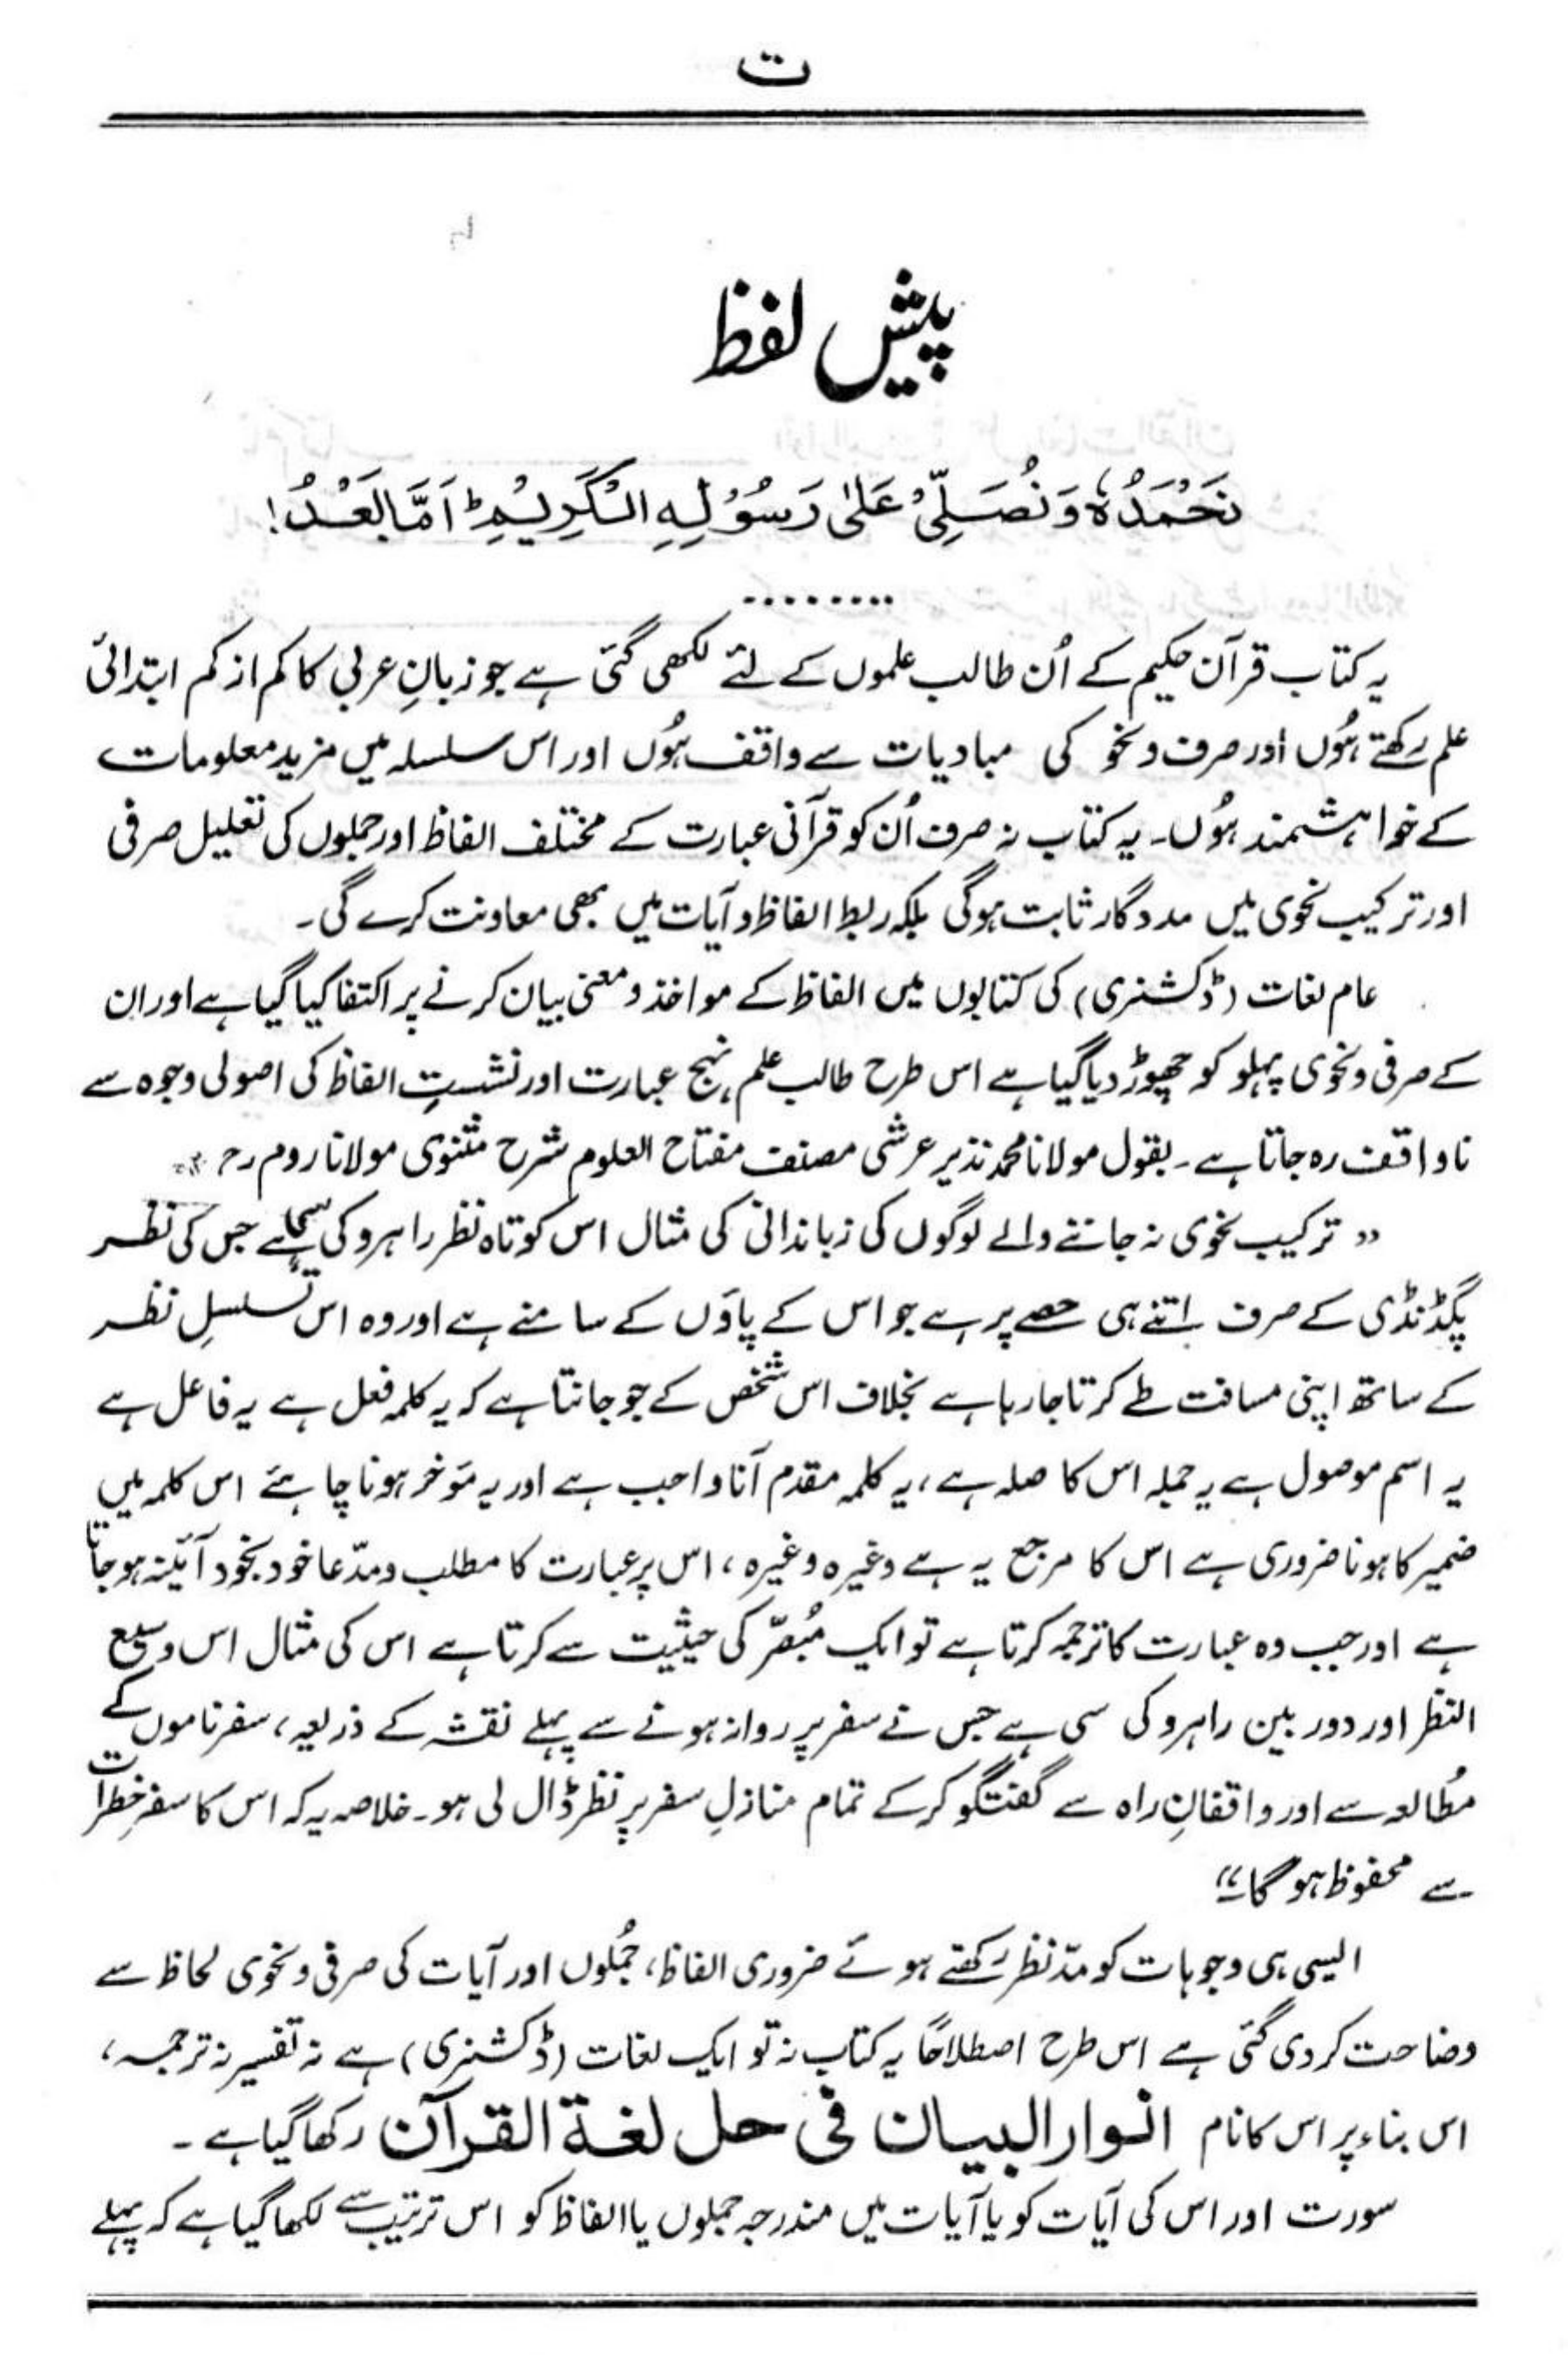 ت
پیش لفظ
نَحْمَدُهٗ وَنُصَلِّیْ عَلٰی رَسُوْلِهِ الْکَرِیْمِ ؕ اَمَّا بَعْدُ!
.........
یہ کتاب قرآن حکیم کے اُن طالب علموں کے لئے لکھی گئی ہے جو زبانِ عربی کا کم از کم ابتدائی
علم رکھتے ہُوں اور صرف و نحو کی مبادیات سے واقف ہُوں اور اس سلسلہ میں مزید معلومات
کے خواہشمند ہُوں۔ یہ کتاب نہ صرف اُن کو قرآنی عبارت کے مختلف الفاظ اور جملوں کی تعلیل صرفی
اور ترکیب نحوی میں مددگار ثابت ہوگی بلکہ ربط الفاظ و آیات میں بھی معاونت کرے گی۔
عام لغات (ڈکشنری) کی کتابوں میں الفاظ کے مواخذ و معنی بیان کرنے پر اکتفا کیا گیا ہے اور ان
کے صرفی و نحوی پہلو کو چھوڑ دیا گیا ہے اس طرح طالب علم نہج عبارت اور نشستِ الفاظ کی اصولی وجوہ سے
ناواقف رہ جاتا ہے۔ بقول مولانا محمد نذیر عرشی مصنف مفتاح العلوم شرح مثنوی مولانا روم رح
“ ترکیب نحوی نہ جاننے والے لوگوں کی زباندانی کی مثال اس کوتاہ نظر راہرو کی سی ہے جس کی نظر
پگڈنڈی کے صرف اتنے ہی حصے پر ہے جو اس کے پاؤں کے سامنے ہے اور وہ اس تسلسلِ نظر
کے ساتھ اپنی مسافت طے کرتا جا رہا ہے بخلاف اس شخص کے جو جانتا ہے کہ یہ کلمہ فعل ہے یہ فاعل ہے
یہ اسم موصول ہے یہ جملہ اس کا صلہ ہے، یہ کلمہ مقدم آنا واجب ہے اور یہ مؤخر ہونا چاہئے اس کلمہ میں
ضمیر کا ہونا ضروری ہے اس کا مرجع یہ ہے وغیرہ وغیرہ، اس پر عبارت کا مطلب و مدّعا خود بخود آئینہ ہو جاتا
ہے اور جب وہ عبارت کا ترجمہ کرتا ہے تو ایک مُبصّر کی حیثیت سے کرتا ہے اس کی مثال اس وسیع
النظر اور دور بین راہرو کی سی ہے جس نے سفر پر روانہ ہونے سے پہلے نقشہ کے ذریعہ، سفرناموں کے
مُطالعہ سے اور واقفانِ راہ سے گفتگو کر کے تمام منازلِ سفر پر نظر ڈال لی ہو۔ خلاصہ یہ کہ اس کا سفر خطرات
سے محفوظ ہو گا۔”
ایسی ہی وجوہات کو مدّنظر رکھتے ہوئے ضروری الفاظ، جُملوں اور آیات کی صرفی و نحوی لحاظ سے
وضاحت کر دی گئی ہے اس طرح اصطلاحًا یہ کتاب نہ تو ایک لغات (ڈکشنری) ہے نہ تفسیر نہ ترجمہ،
اس بناء پر اس کا نام انوار البیان فی حل لغة القرآن رکھا گیا ہے۔
سورت اور اس کی آیات کو یا آیات میں مندرجہ جملوں یا الفاظ کو اس ترتیب سے لکھا گیا ہے کہ پہلے